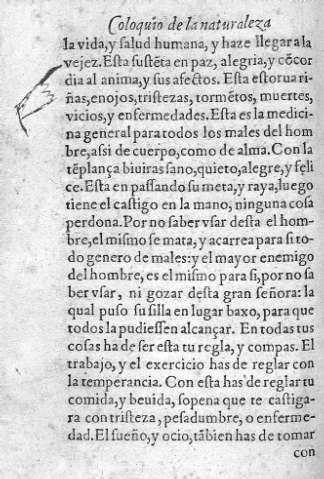 Coloquio de la naturaleza
la vida, y salud humana, y haze llegar a la
vejez. Esta sustẽta en paz, alegria, y cõcor
dia al anima, y sus afectos. Esta estorua ri
ñas, enojos, tristezas, tormẽtos, muertes,
vicios, y enfermedades. Esta es la medici
na general para todos los males del hom
bre, assi de cuerpo, como de alma. Con la
tẽplança biuiras sano, quieto, alegre, y feli
ce. Esta en passando su meta, y raya, luego
tiene el castigo en la mano, ninguna cosa
perdona. Por no saber vsar desta el hom
bre, el mismo se mata, y acarrea para si to
do genero de males: y el mayor enemigo
del hombre, es el mismo para si, por no sa
ber vsar, ni gozar desta gran señora: la
qual puso su silla en lugar baxo, para que
todos la pudiessen alcançar. En todas tus
cosas ha de ser esta tu regla, y compas. El
trabajo, y el exercicio has de reglar con
la temperancia. Con esta has de reglar tu
comida, y beuida, so pena que te castiga-
ra con tristeza, pesadumbre, o enferme-
dad. El sueño, y ocio, tãbien has de tomar
con